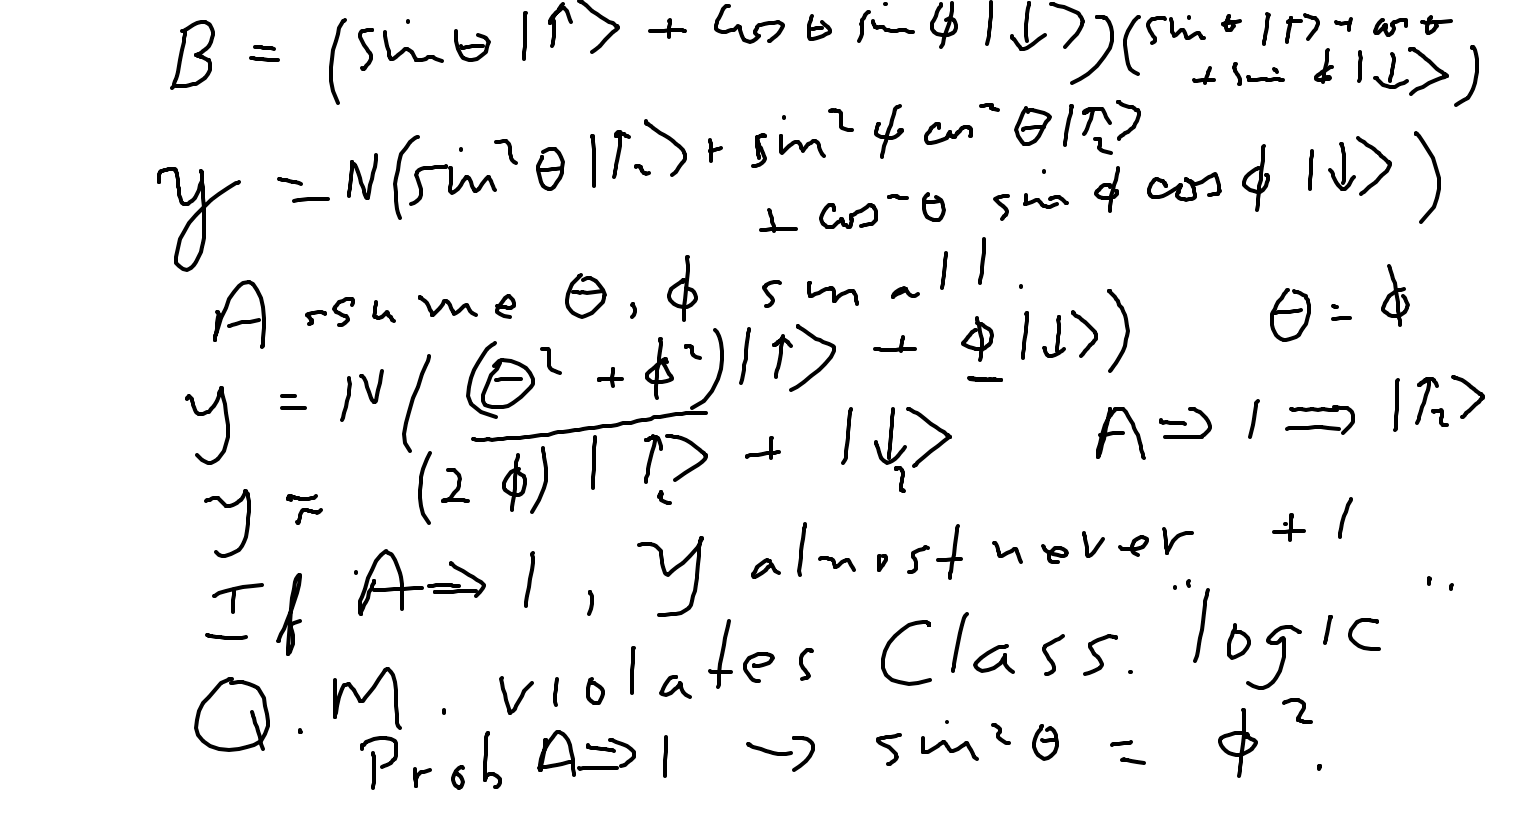 B = (sin θ |↑> + cos θ sin ϕ |↓>)(sin θ |↑> + cos θ
+ sin ϕ |↓>)
y = N(sin² θ |↑₂> + sin² ϕ cos² θ |↑₂>
+ cos² θ sin ϕ cos ϕ |↓>)
Assume θ, ϕ small. θ = ϕ
y = N((θ² + ϕ²) |↑> + ϕ |↓>)
y ≈ (2 ϕ) |↑₂> + |↓₂> A ⇒ 1 ⇒ |↑₂>
If A ⇒ 1, y almost never +1
Q.M. violates Class. "logic"
Prob A ⇒ 1 → sin² θ = ϕ².